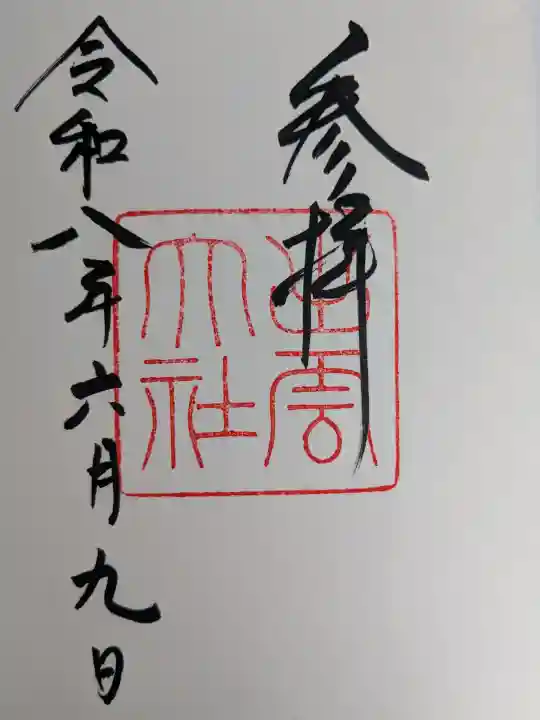 参拝
出雲
大社
令和八年六月九日